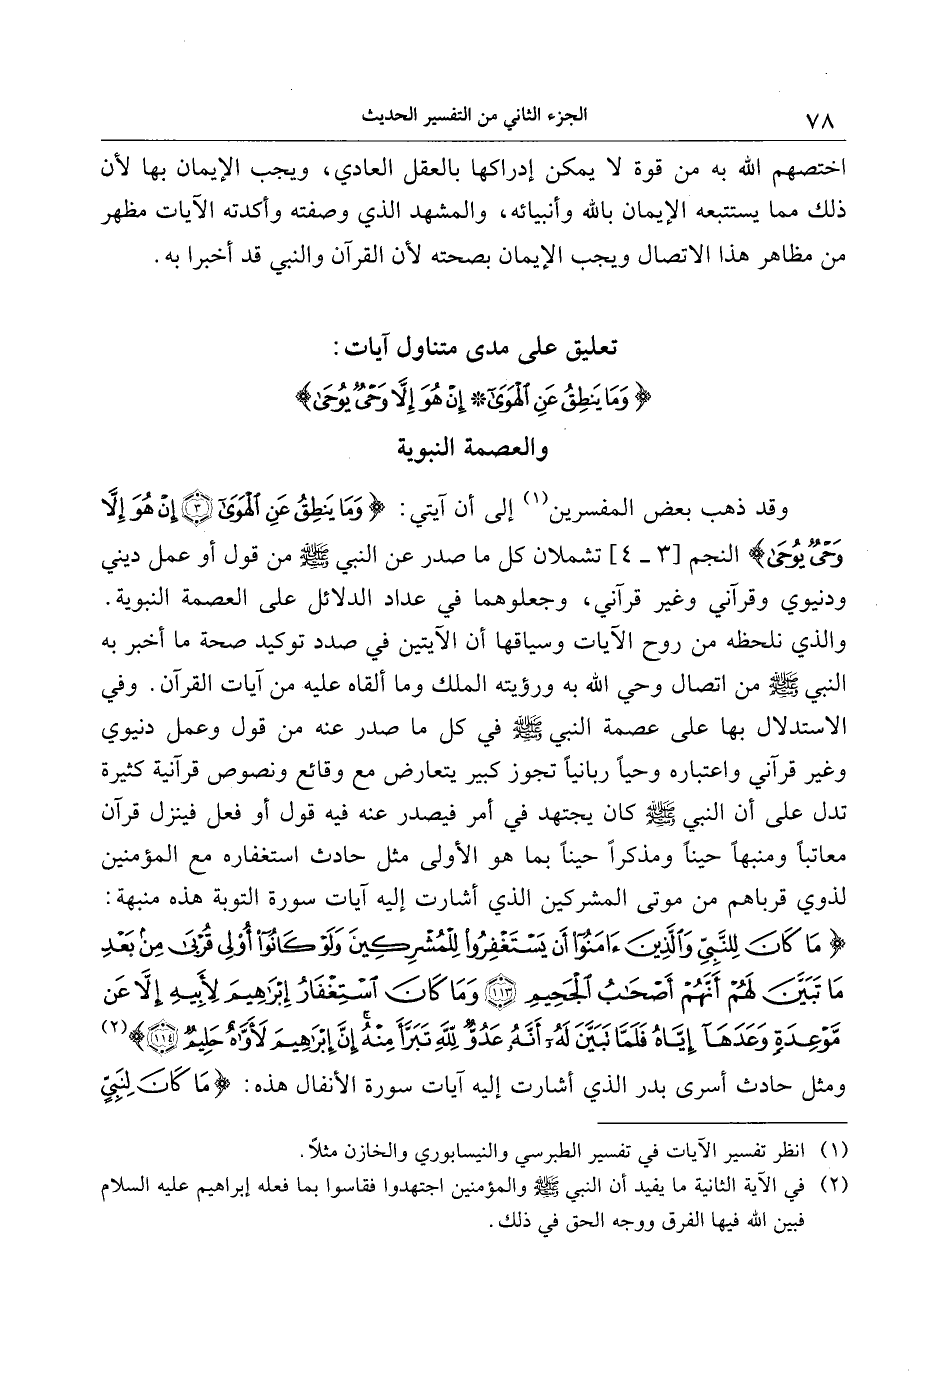 ٧٨
الجزء الثاني من التفسير الحديث
اختصهم الله به من قوة لا يمكن إدراكها بالعقل العادي، ويجب الإيمان بها لأن
ذلك مما يستتبعه الإيمان بالله وأنبيائه، والمشهد الذي وصفته وأكدته الآيات مظهر
من مظاهر هذا الاتصال ويجب الإيمان بصحته لأن القرآن والنبي قد أخبرا به.
تعليق على مدى متناول آيات:
﴿ وَمَا يَنطِقُ عَنِ ٱلْهَوَىٰٓ * إِنْ هُوَ إِلَّا وَحْىٌ يُوحَىٰ ﴾
والعصمة النبوية
وقد ذهب بعض المفسرين(١) إلى أن آيتي: ﴿ وَمَا يَنطِقُ عَنِ ٱلْهَوَىٰٓ ٣ إِنْ هُوَ إِلَّا
وَحْىٌ يُوحَىٰ ﴾ النجم [٣ ـ ٤] تشملان كل ما صدر عن النبي ﷺ من قول أو عمل ديني
ودنيوي وقرآني وغير قرآني، وجعلوهما في عداد الدلائل على العصمة النبوية.
والذي نلحظه من روح الآيات وسياقها أن الآيتين في صدد توكيد صحة ما أخبر به
النبي ﷺ من اتصال وحي الله به ورؤيته الملك وما ألقاه عليه من آيات القرآن. وفي
الاستدلال بها على عصمة النبي ﷺ في كل ما صدر عنه من قول وعمل دنيوي
وغير قرآني واعتباره وحياً ربانياً تجوز كبير يتعارض مع وقائع ونصوص قرآنية كثيرة
تدل على أن النبي ﷺ كان يجتهد في أمر فيصدر عنه فيه قول أو فعل فينزل قرآن
معاتباً ومنبهاً حيناً ومذكراً حيناً بما هو الأولى مثل حادث استغفاره مع المؤمنين
لذوي قرباهم من موتى المشركين الذي أشارت إليه آيات سورة التوبة هذه منبهة:
﴿ مَا كَانَ لِلنَّبِيِّ وَٱلَّذِينَ ءَامَنُوٓا۟ أَن يَسْتَغْفِرُوا۟ لِلْمُشْرِكِينَ وَلَوْ كَانُوٓا۟ أُو۟لِى قُرْبَىٰ مِنۢ بَعْدِ
مَا تَبَيَّنَ لَهُمْ أَنَّهُمْ أَصْحَٰبُ ٱلْجَحِيمِ ١١٣ وَمَا كَانَ ٱسْتِغْفَارُ إِبْرَٰهِيمَ لِأَبِيهِ إِلَّا عَن
مَّوْعِدَةٍ وَعَدَهَآ إِيَّاهُ فَلَمَّا تَبَيَّنَ لَهُۥٓ أَنَّهُۥ عَدُوٌّ لِّلَّهِ تَبَرَّأَ مِنْهُ ۚ إِنَّ إِبْرَٰهِيمَ لَأَوَّٰهٌ حَلِيمٌ ١١٤ ﴾(٢)
ومثل حادث أسرى بدر الذي أشارت إليه آيات سورة الأنفال هذه: ﴿ مَا كَانَ لِنَبِىٍّ
(١) انظر تفسير الآيات في تفسير الطبرسي والنيسابوري والخازن مثلاً.
(٢) في الآية الثانية ما يفيد أن النبي ﷺ والمؤمنين اجتهدوا فقاسوا بما فعله إبراهيم عليه السلام
فبين الله فيها الفرق ووجه الحق في ذلك.